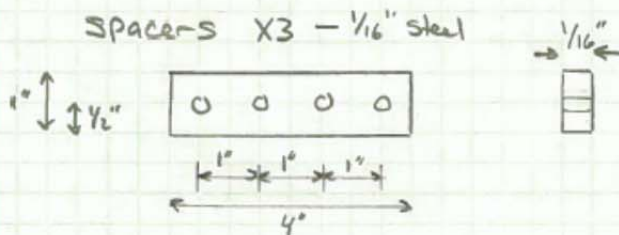 Spacers X3 - 1/16" Steel
1/16"
1"
1/2"
1" 1" 1"
4"